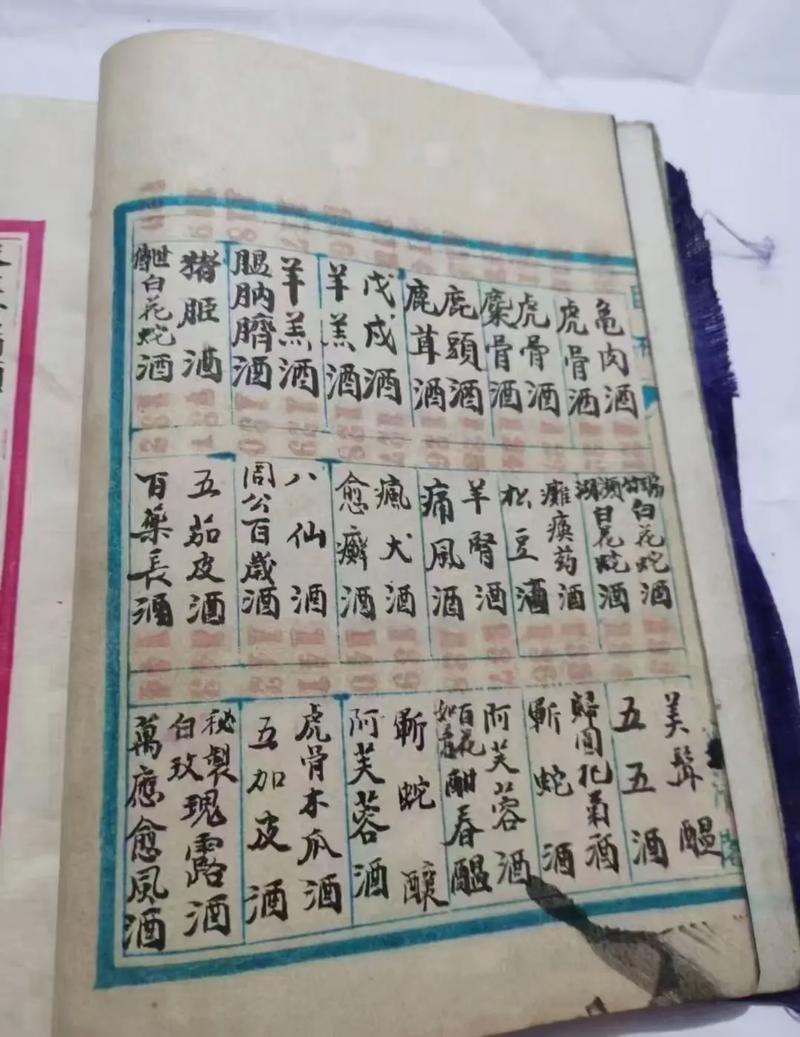 龜肉酒
虎骨酒
虎骨酒
麋骨酒
鹿頭酒
鹿茸酒
戊戌酒
羊羔酒
羊羔酒
膃肭臍酒
豬脏酒
世傳白花蛇酒
瑞竹白花蛇酒
瀕湖白花蛇酒
癱瘓药酒
松豆酒
羊腎酒
痛風酒
瘋犬酒
愈癬酒
八仙酒
周公百歲酒
五茄皮酒
百藥長酒
美髯醖
五五酒
歸圓杞菊酒
蘄蛇酒
阿芙蓉酒
百花如意酣春醖
蘄蛇釀
阿芙蓉酒
虎骨木瓜酒
五加皮酒
秘製白玫瑰露酒
萬應愈風酒